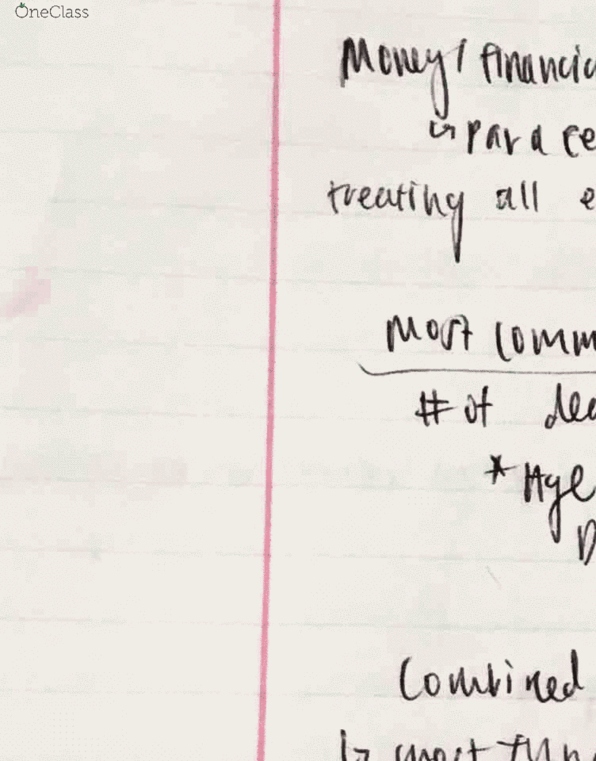 OneClass
Money / financic
↳ par a ce
treating all e
Most comm
# of dea
* Age
D
Combined
↳ most fun